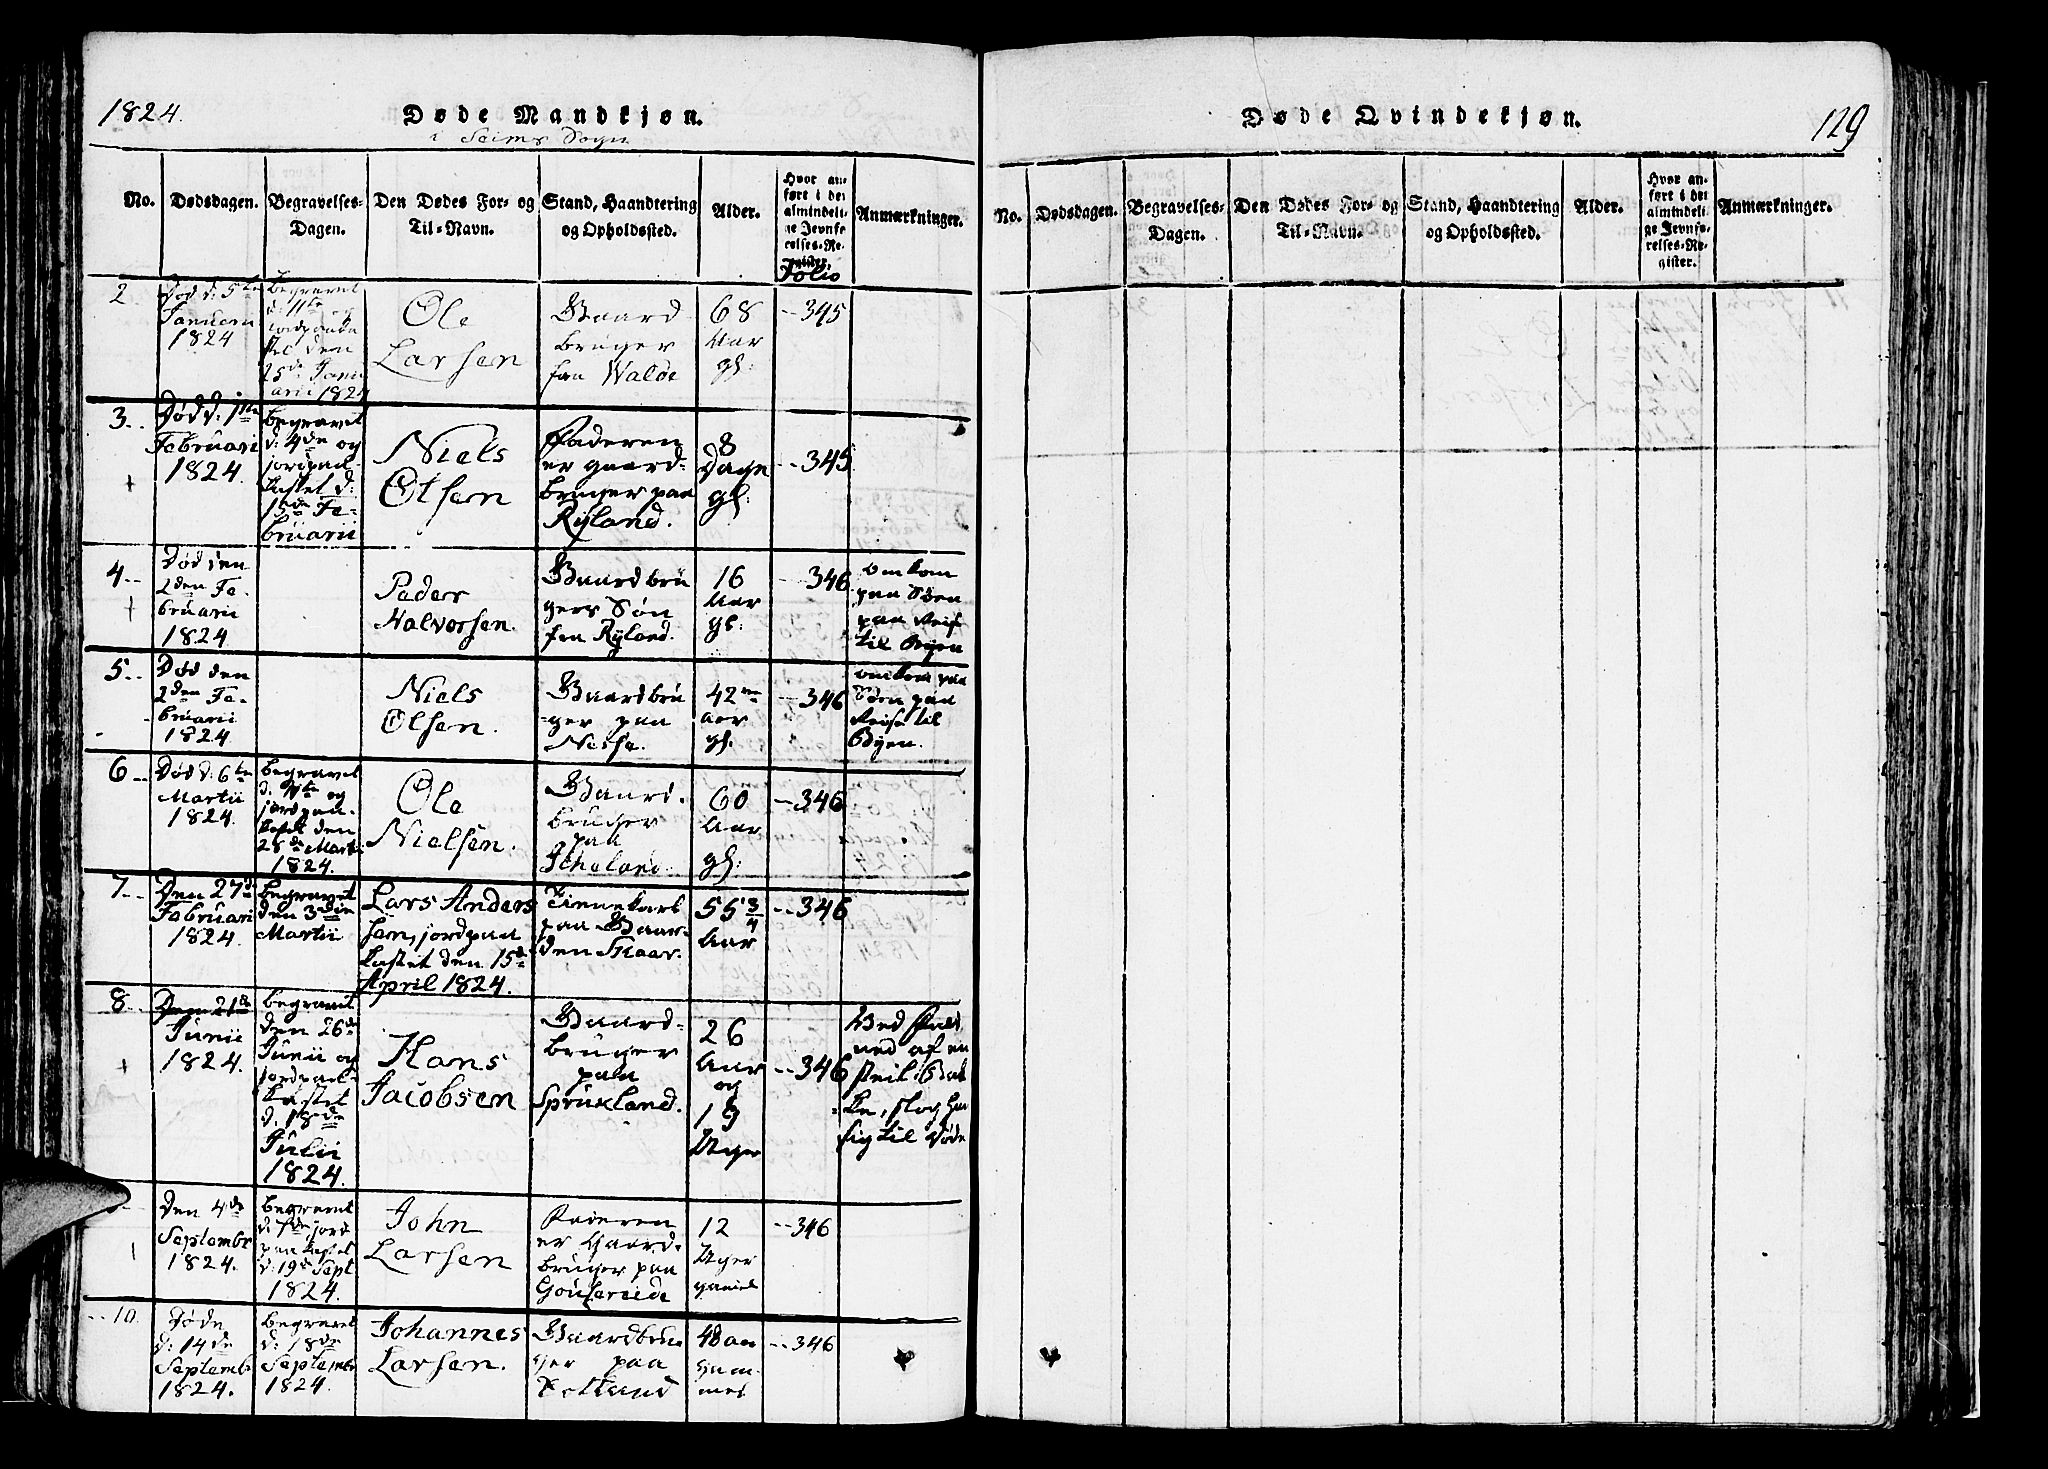 1824.
Døde Mandkjøn.
i Seims Sogn
No.
Dødsdagen.
Begravelses-
Dagen.
Den Dødes For- og
Til-Navn.
Stand, Haandtering
og Opholdssted.
Alder.
Hvor an-
ført i det
almindeli-
ge Jevnfø-
relses-Re-
gister.
Folio
Anmærkninger.
2
Død d: 5te
Januarii
1824
begravet
d: 11te og
jordpaaka-
stet den
25de Janu
arii 1824
Ole
Larsen
Gaard
bruger
fra Walde
68
Aar
gl:
345
3
Død d: 1te
Februarii
1824.
begravet
d: 4de og
jordpaa-
kastet d:
15de Fe-
bruarii
Niels
Olsen
Faderen
er gaard-
bruger paa
Ryland.
8
Dage
gl:
345
4
Død den
2den Fe-
bruarii
1824
Peder
Halvorsen.
Gaardbru
gers Søn
fra Ryland.
16
Aar
gl:
346
omkom
paa Søen
paa Reise
til Byen
5
Død den
2den Fe-
bruarii
1824
Niels
Olsen.
Gaardbru
ger paa
Nesse.
42
aar
gl.
346
omkom paa
Søen paa
Reise til
Byen.
6
Død d: 6te
Martii
1824.
begravet
d. 9te og
jordpaa-
kastet den
28de Martii
1824.
Ole
Nielsen.
Gaard-
bruger
paa
60
Aar
gl:
346
7
Den 27de
Februarii
1824.
begravet
den 3die
Martii
Lars Anders
sen, jordpaa
kastet den 15de
April 1824.
Tienekarl
paa Gaar-
den Skaar.
55 3/4
Aar
346
8
Den 21de
Junii
1824.
begravet
den 26de
Junii og
jordpaa-
kastet
d. 18de
Julii
1824.
Hans
Jacobsen
Gaard-
bruger
paa
Sprukland.
26
Aar
og
19
Uger
346
Ved Fald
ned af en
steil Bak
ke, slog han
sig til Døde
Den 4de
Septembr
1824.
begravet
d: 7de, jord
paakastet
d: 19de Sept
1824.
John
Larsen
Faderen
er Gaard-
bruger paa
12
Uger
gamel
346
10
Døde
d: 14de
Septembr
1824.
begravet
d: 18de
Septembr
1824.
Johannes
Larsen.
Gaardbru
ger paa
48 aar
gam-
mel
346
Døde Qvindekjøn.
129
No.
Dødsdagen.
Begravelses-
Dagen.
Den Dødes For- og
Til-Navn.
Stand, Haandtering
og Opholdssted.
Alder.
Hvor an-
ført i det
almindeli-
ge Jevnfø-
relses-Re-
gister.
Anmærkninger.